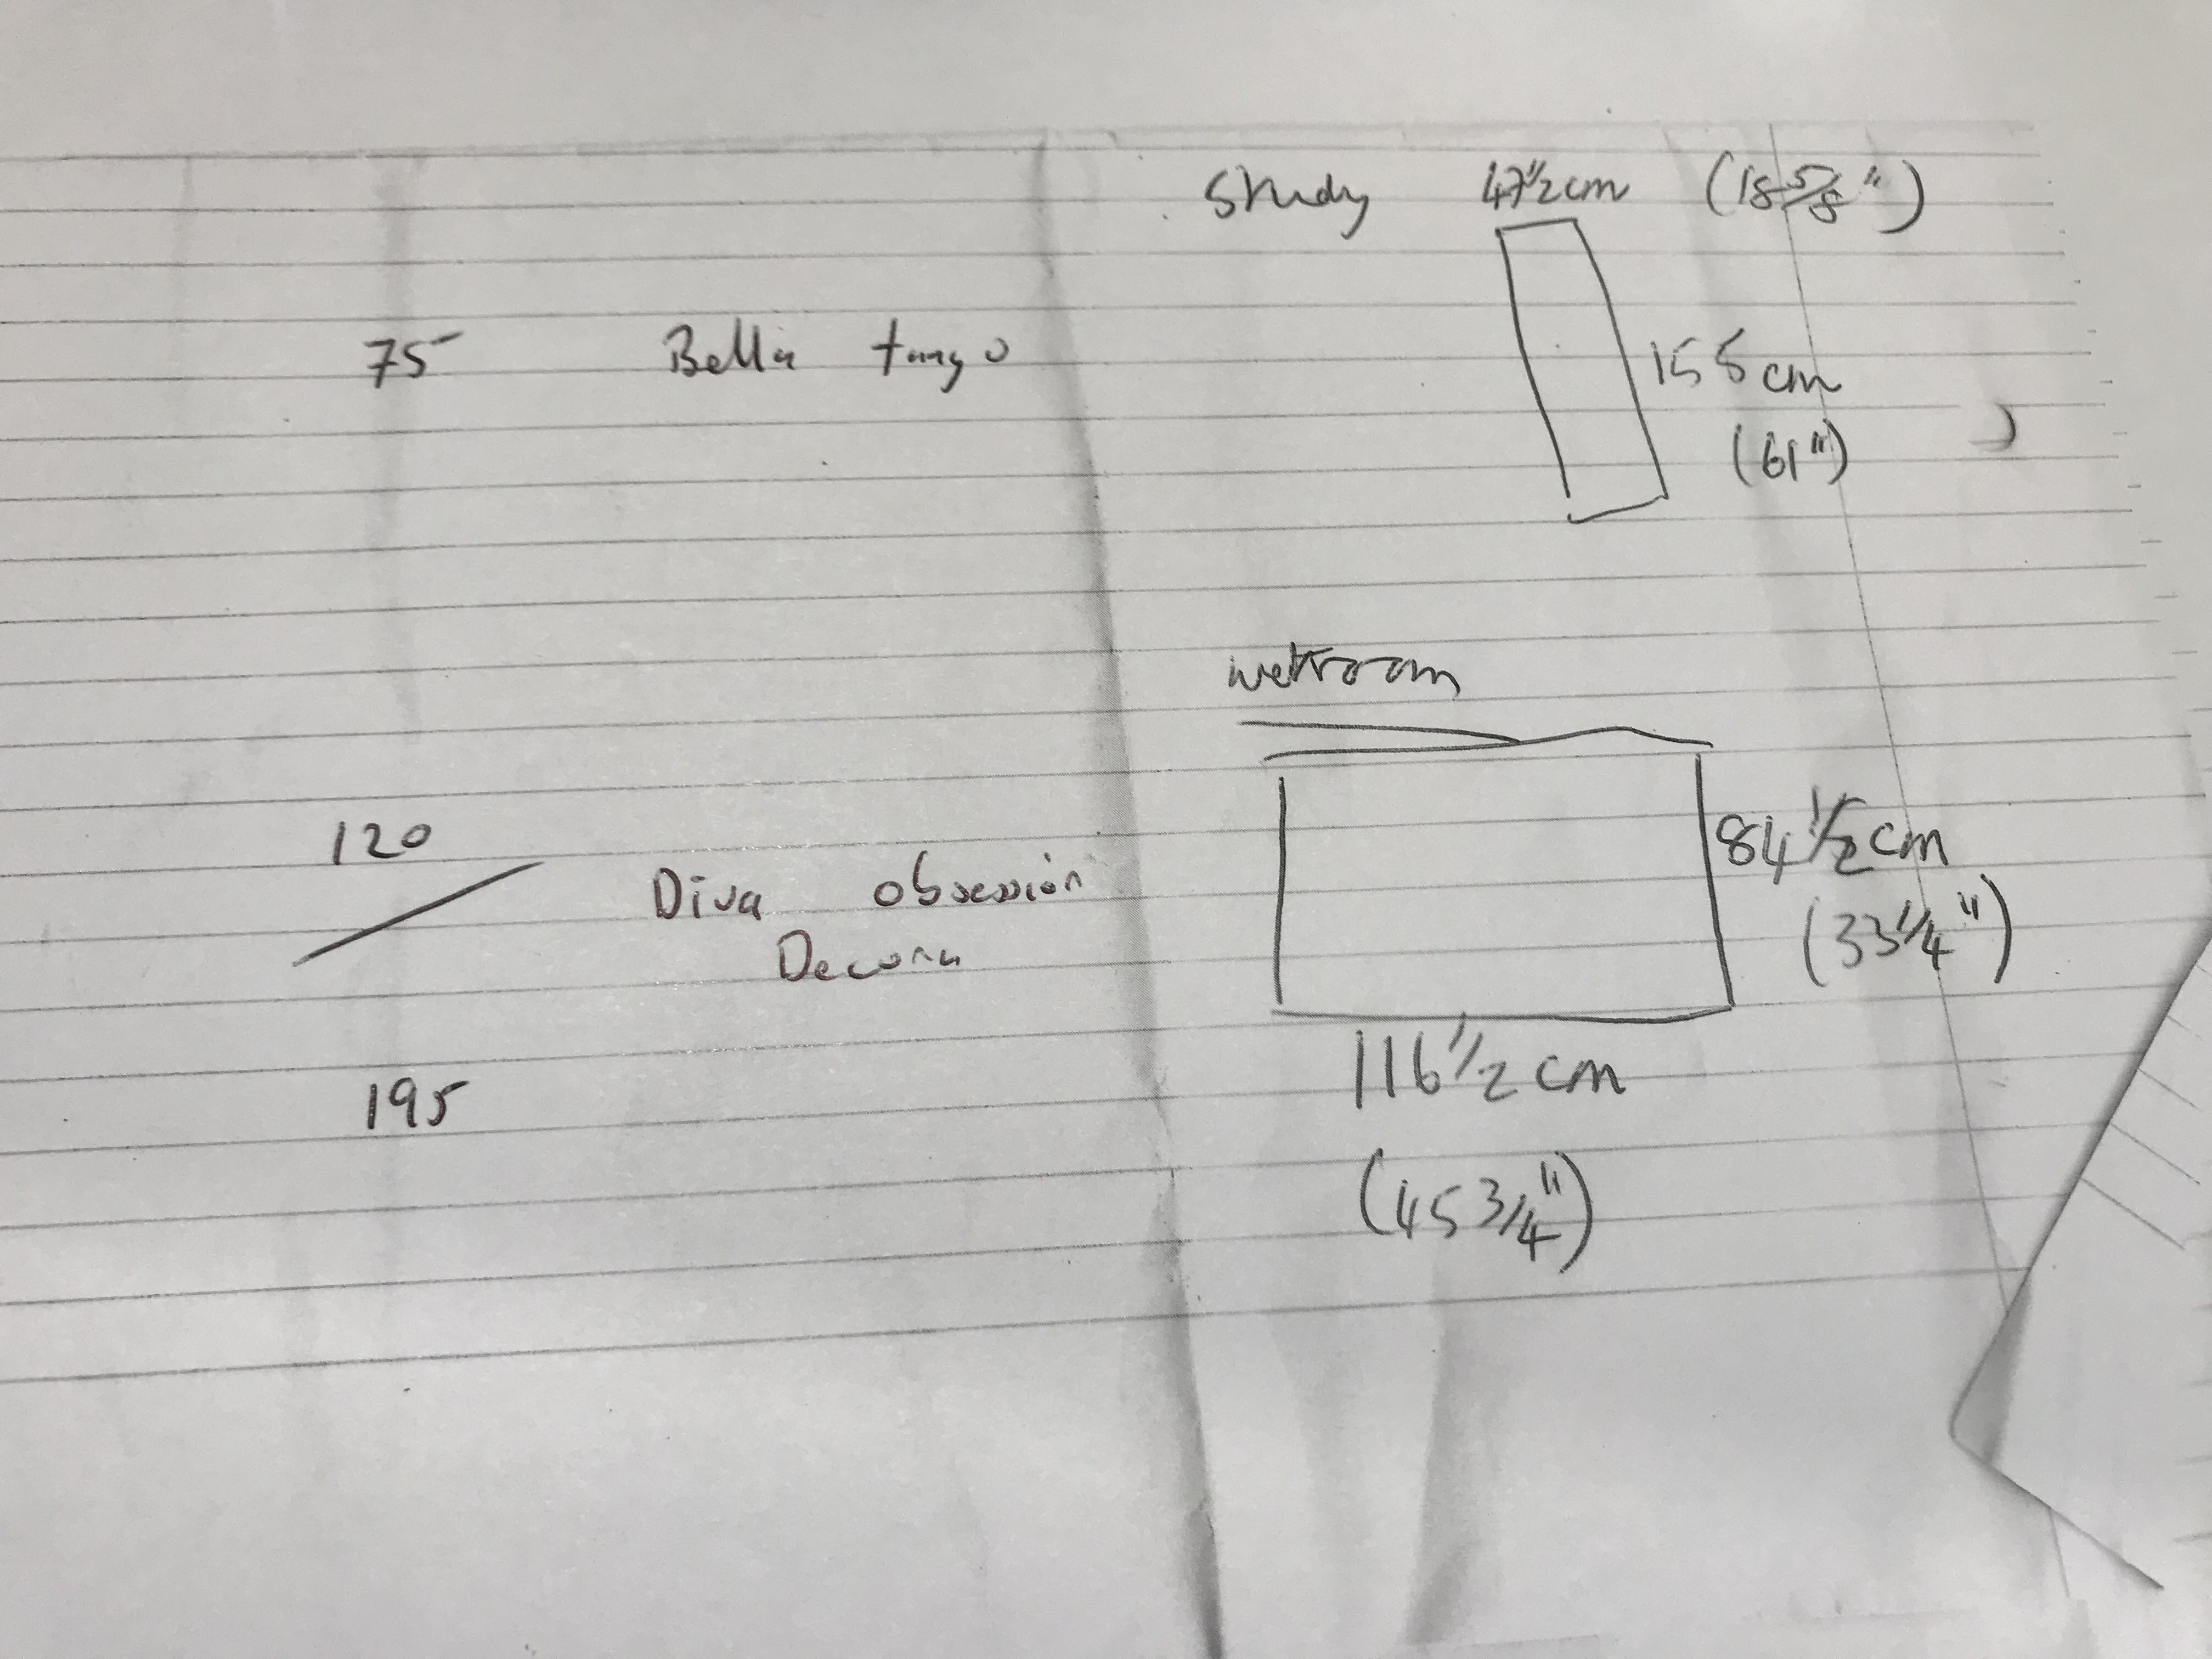 Study 47 1/2 cm (18 5/8")
75 Bella tango
155 cm
(61")
wetroom
120
Diva obsession
Decora
84 1/2 cm
(33 1/4")
195
116 1/2 cm
(45 3/4")